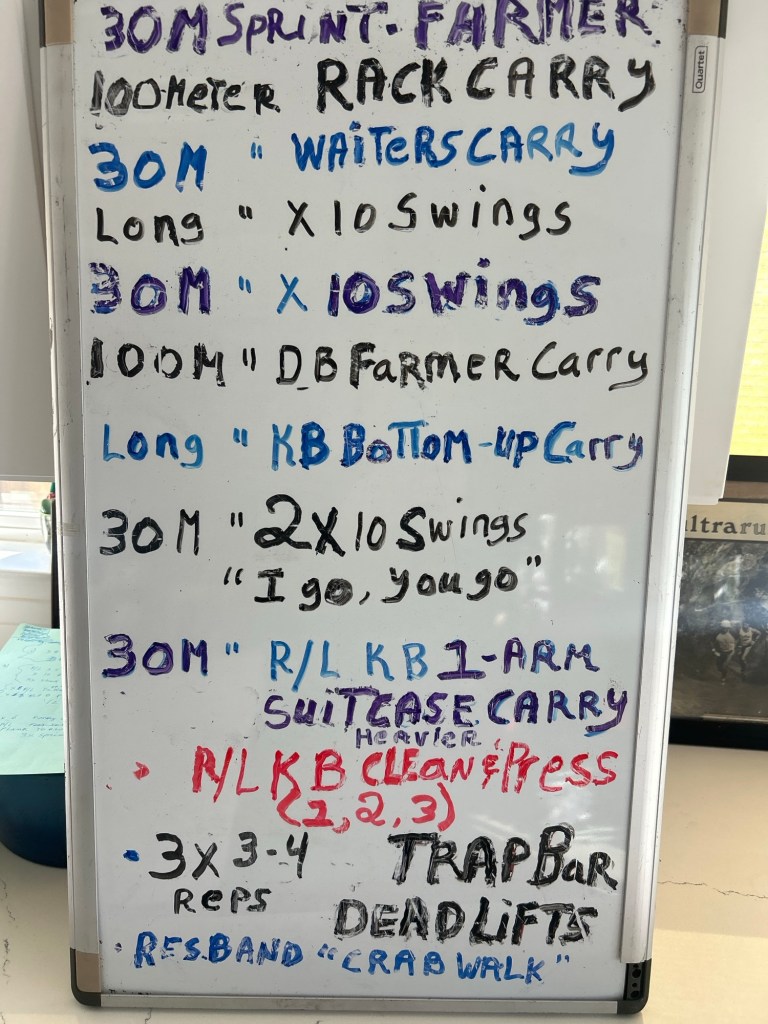 30M SPRINT - FARMER
100 METER RACK CARRY
Quartet
30M " WAITERS CARRY
Long " X 10 Swings
30M " X 10 Swings
100M " DB FARMER Carry
Long " KB BOTTOM-UP Carry
30M " 2X10 Swings
"I go, you go"
30M " R/L KB 1-ARM
SUITCASE CARRY
HEAVIER
R/L KB CLEAN & PRESS
(1, 2, 3)
• 3X 3-4 TRAP BAR
REPS DEADLIFTS
• RES. BAND "CRAB WALK"
ltraru